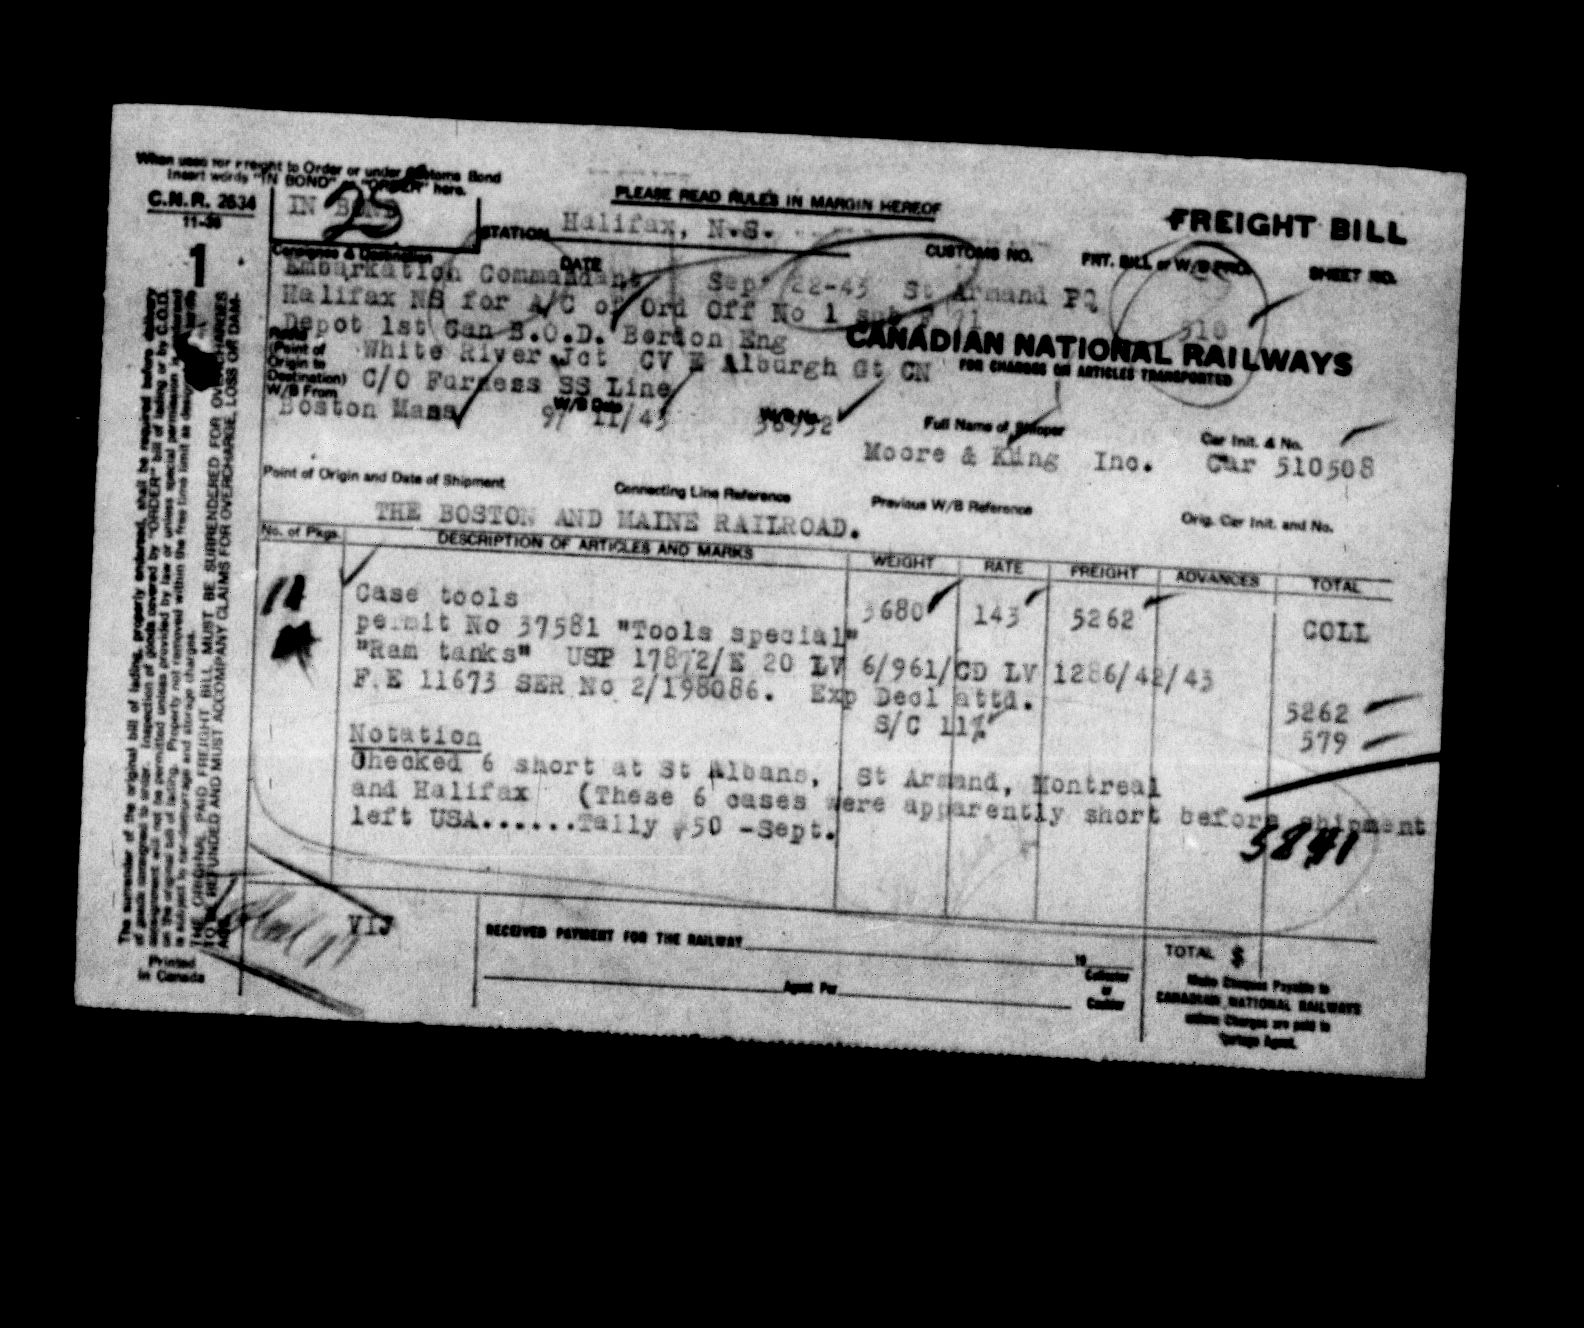 When used for Freight to Order or under Customs Bond
Insert words "IN BOND" or "ORDER" here.
C.N.R. 2634
11-36
IN BOND
25
PLEASE READ RULES IN MARGIN HEREOF
STATION Halifax, N.S.
FREIGHT BILL
Consignee & Destination
DATE
CUSTOMS NO.
FRT. BILL or W/B PRO.
SHEET NO.
1
Embarkation Commandant Sep 22-43 St Armand PQ
Halifax NS for A/C of Ord Off No 1 sub P 71 310
Depot 1st Can B.O.D. Bordon Eng
CANADIAN NATIONAL RAILWAYS
FOR CHARGES ON ARTICLES TRANSPORTED
Route
(Point of
Origin to
Destination)
White River Jct CV E Alburgh Gt CN
C/O Furness SS Line
W/B From
W/B Date
W/B No.
Full Name of Shipper
Car Init. & No.
Boston Mass 9/ 11/43 36932
Moore & King Inc. Car 510508
Point of Origin and Date of Shipment
Connecting Line Reference
Previous W/B Reference
Orig. Car Init. and No.
THE BOSTON AND MAINE RAILROAD.
No. of Pkgs.
DESCRIPTION OF ARTICLES AND MARKS
WEIGHT
RATE
FREIGHT
ADVANCES
TOTAL
Case tools 3680 143 5262 COLL
permit No 37581 "Tools special"
"Ram tanks" USP 17872/E 20 LV 6/961/CD LV 1286/42/43
F.E 11673 SER No 2/198086. Exp Decl attd.
5262
S/C 11%
579
Notation
Checked 6 short at St Albans, St Armand, Montreal
and Halifax (These 6 cases were apparently short before shipment
left USA......Tally #50 -Sept.
5841
VIJ
RECEIVED PAYMENT FOR THE RAILWAY
19
Agent Per
Collector
or
Cashier
TOTAL $
Make Cheques Payable to
CANADIAN NATIONAL RAILWAYS
unless Charges are paid to
Cartage Agent.
The surrender of the original bill of lading, properly endorsed, shall be required before delivery
of goods consigned to order. Inspection of goods covered by "ORDER" bill of lading or by C.O.D.
consignment will not be permitted unless provided by law or unless special permission is
on the original bill of lading. Property not removed within the free time limit as
is subject to car-demurrage and storage charges.
THE ORIGINAL PAID FREIGHT BILL MUST BE SURRENDERED FOR OVERCHARGES
TO BE REFUNDED AND MUST ACCOMPANY CLAIMS FOR OVERCHARGE, LOSS OR DAM-
AGE.
Printed
in Canada